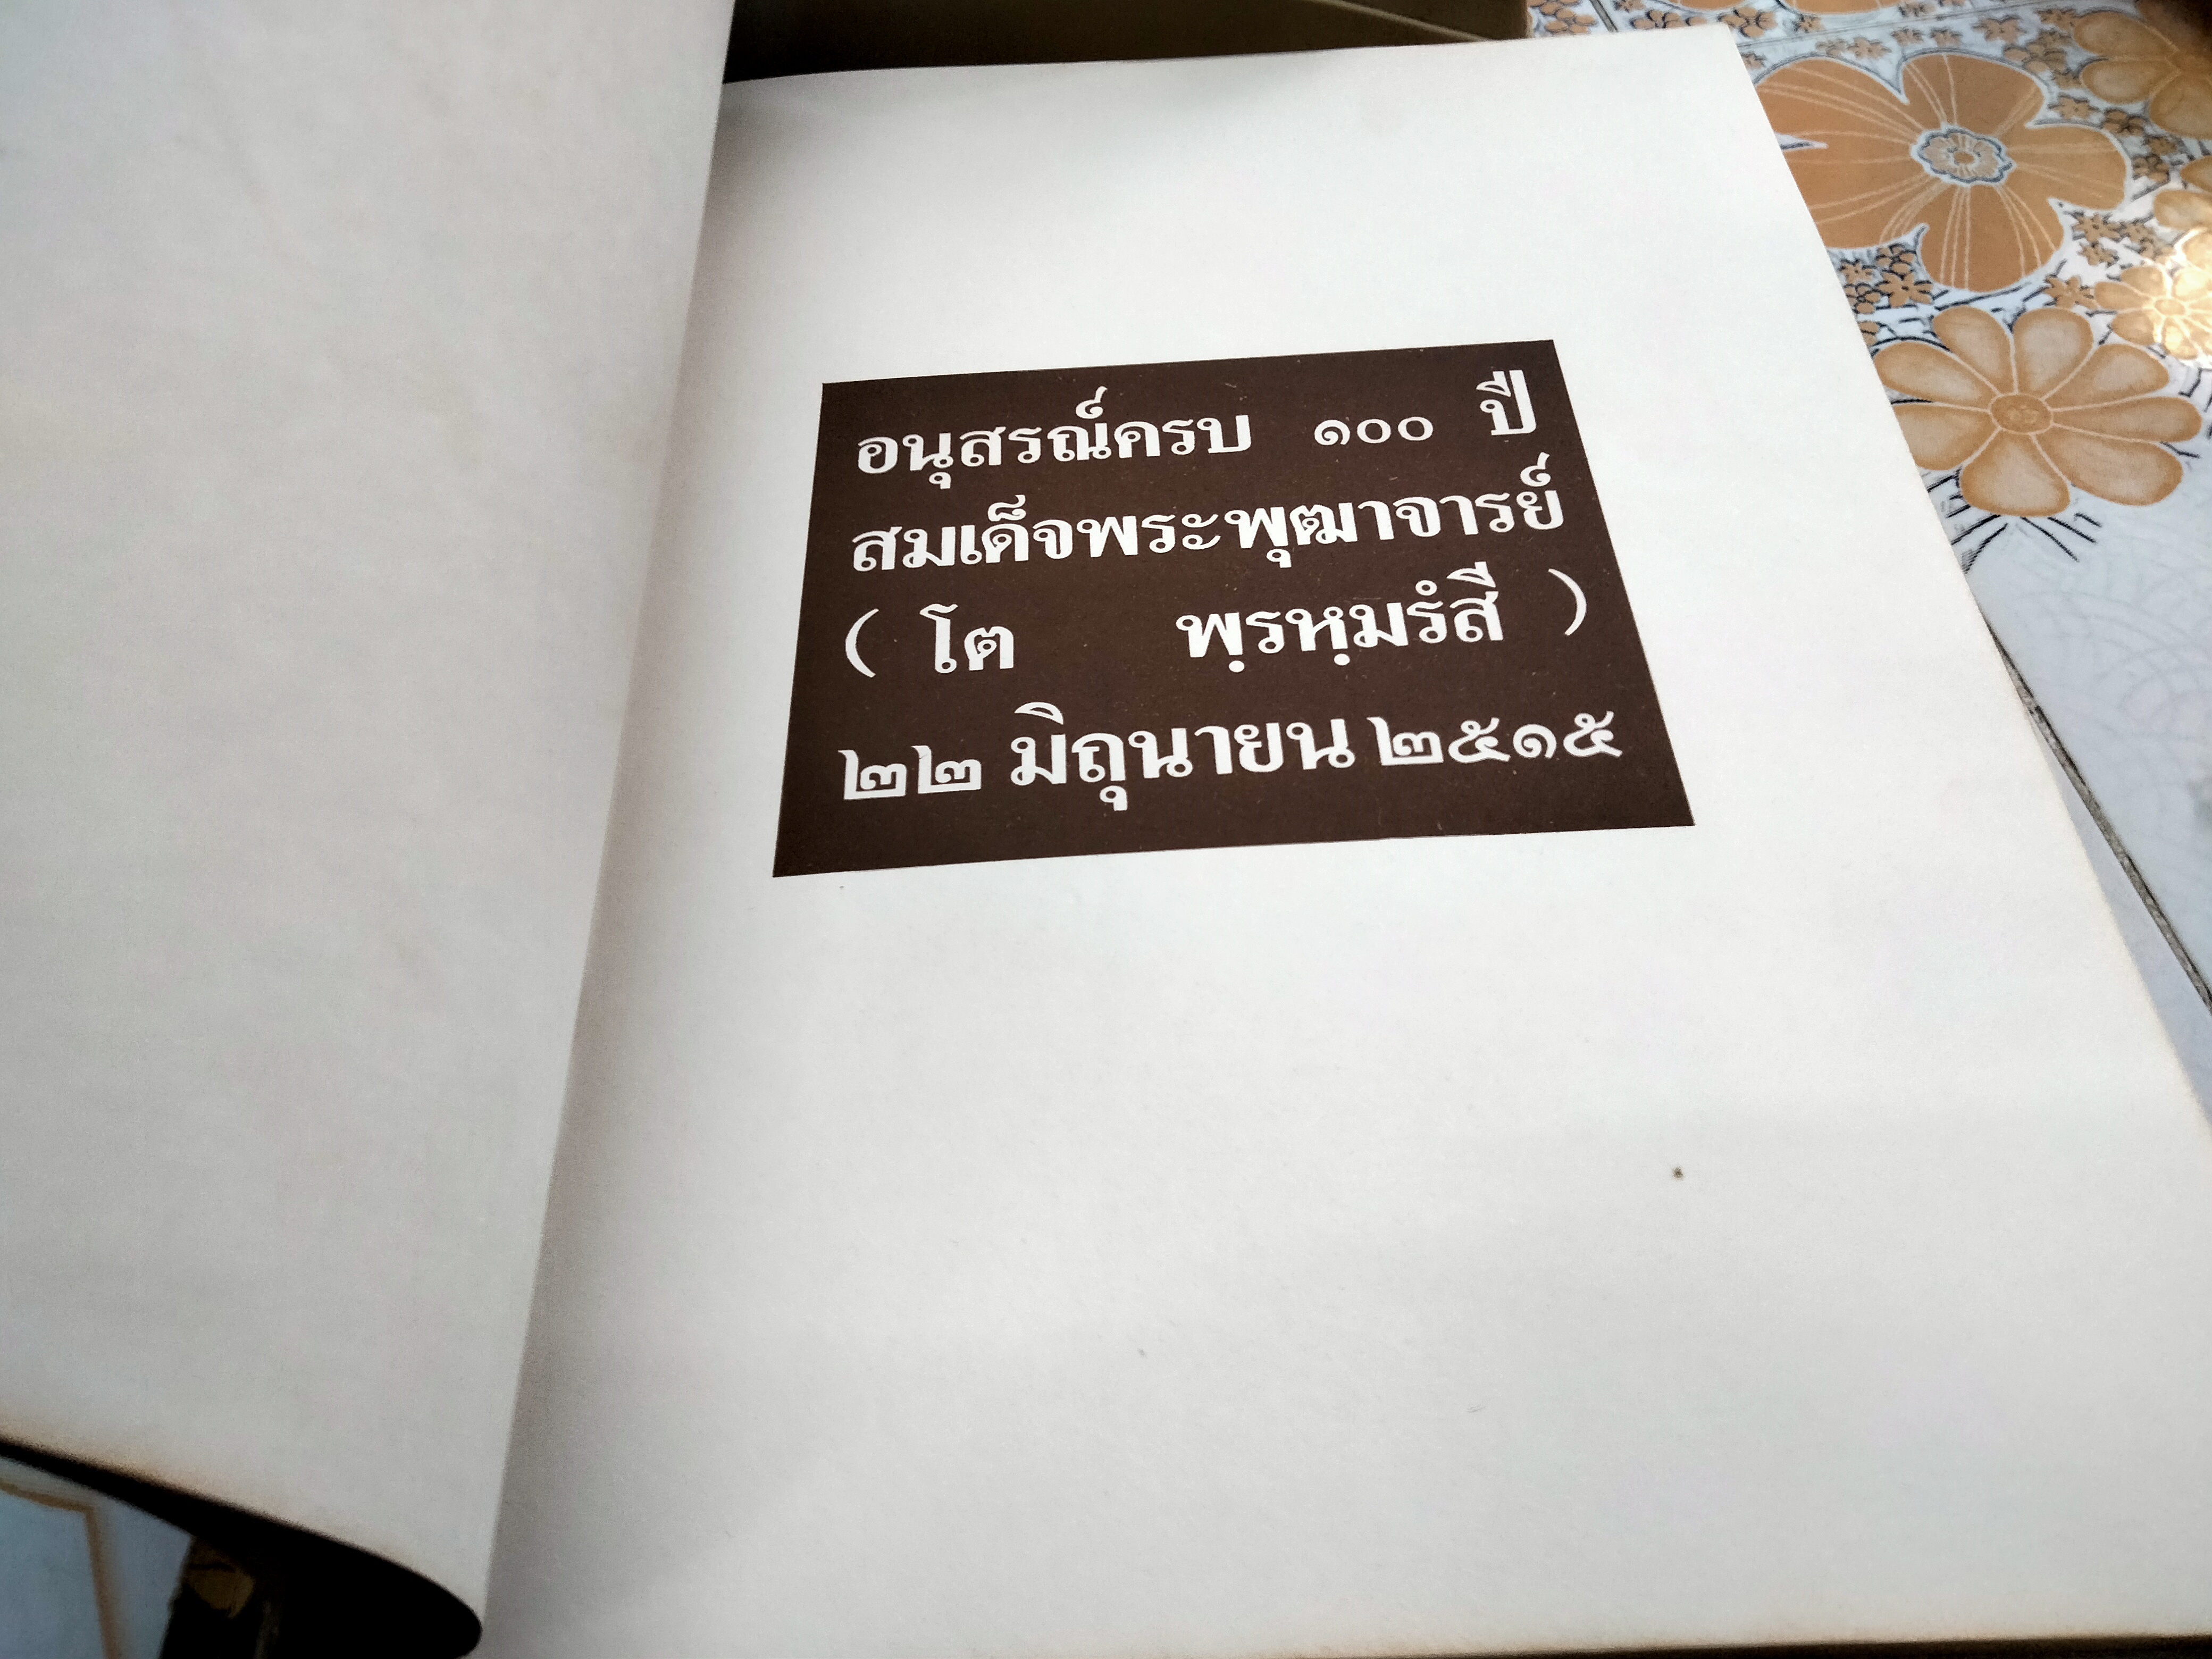 อนุสรณ์ครบ ๑๐๐ ปี
สมเด็จพระพุฒาจารย์
( โต พฺรหฺมรํสี )
๒๒ มิถุนายน ๒๕๑๕